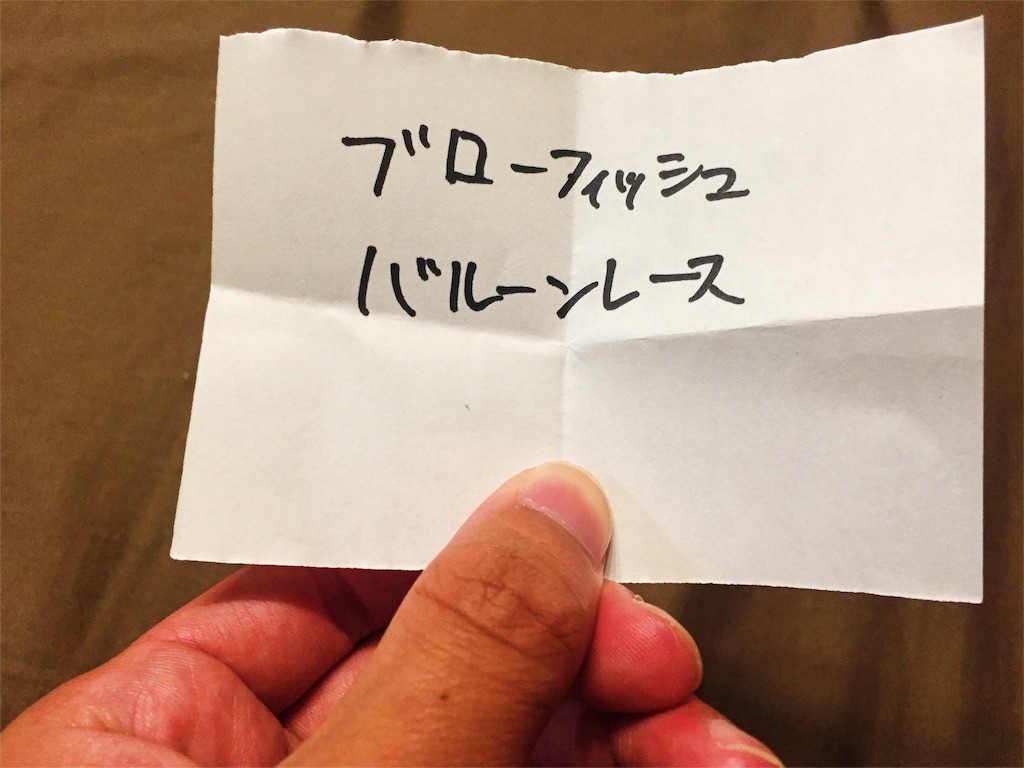 ブローフィッシュ
バルーンレース